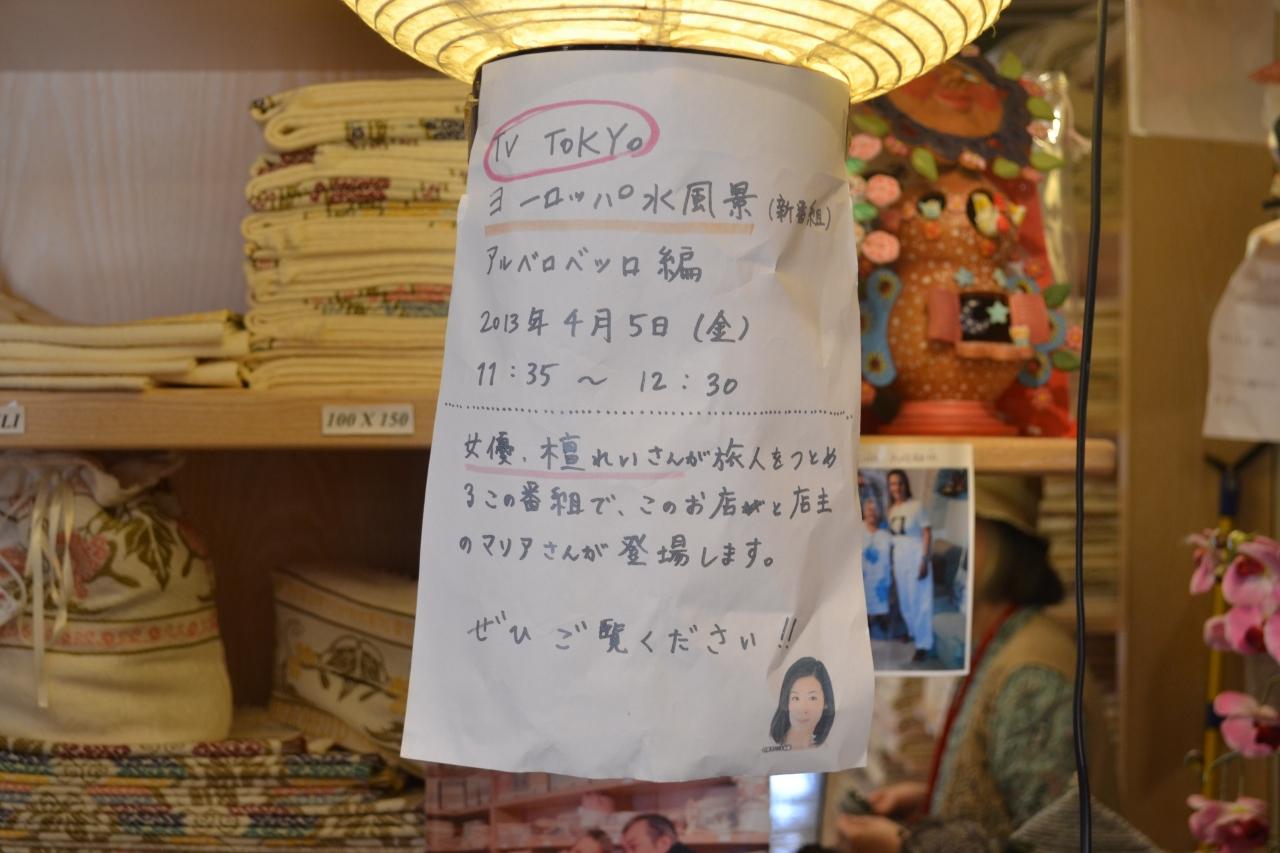 TV TOKYO
ヨーロッパ水風景(新番組)
アルベロベッロ編
2013年4月5日(金)
11:35 ~ 12:30
女優、檀れいさんが旅人をつとめ
るこの番組で、このお店がと店主
のマリアさんが登場します。
ぜひご覧ください!!
100 X 150
LI